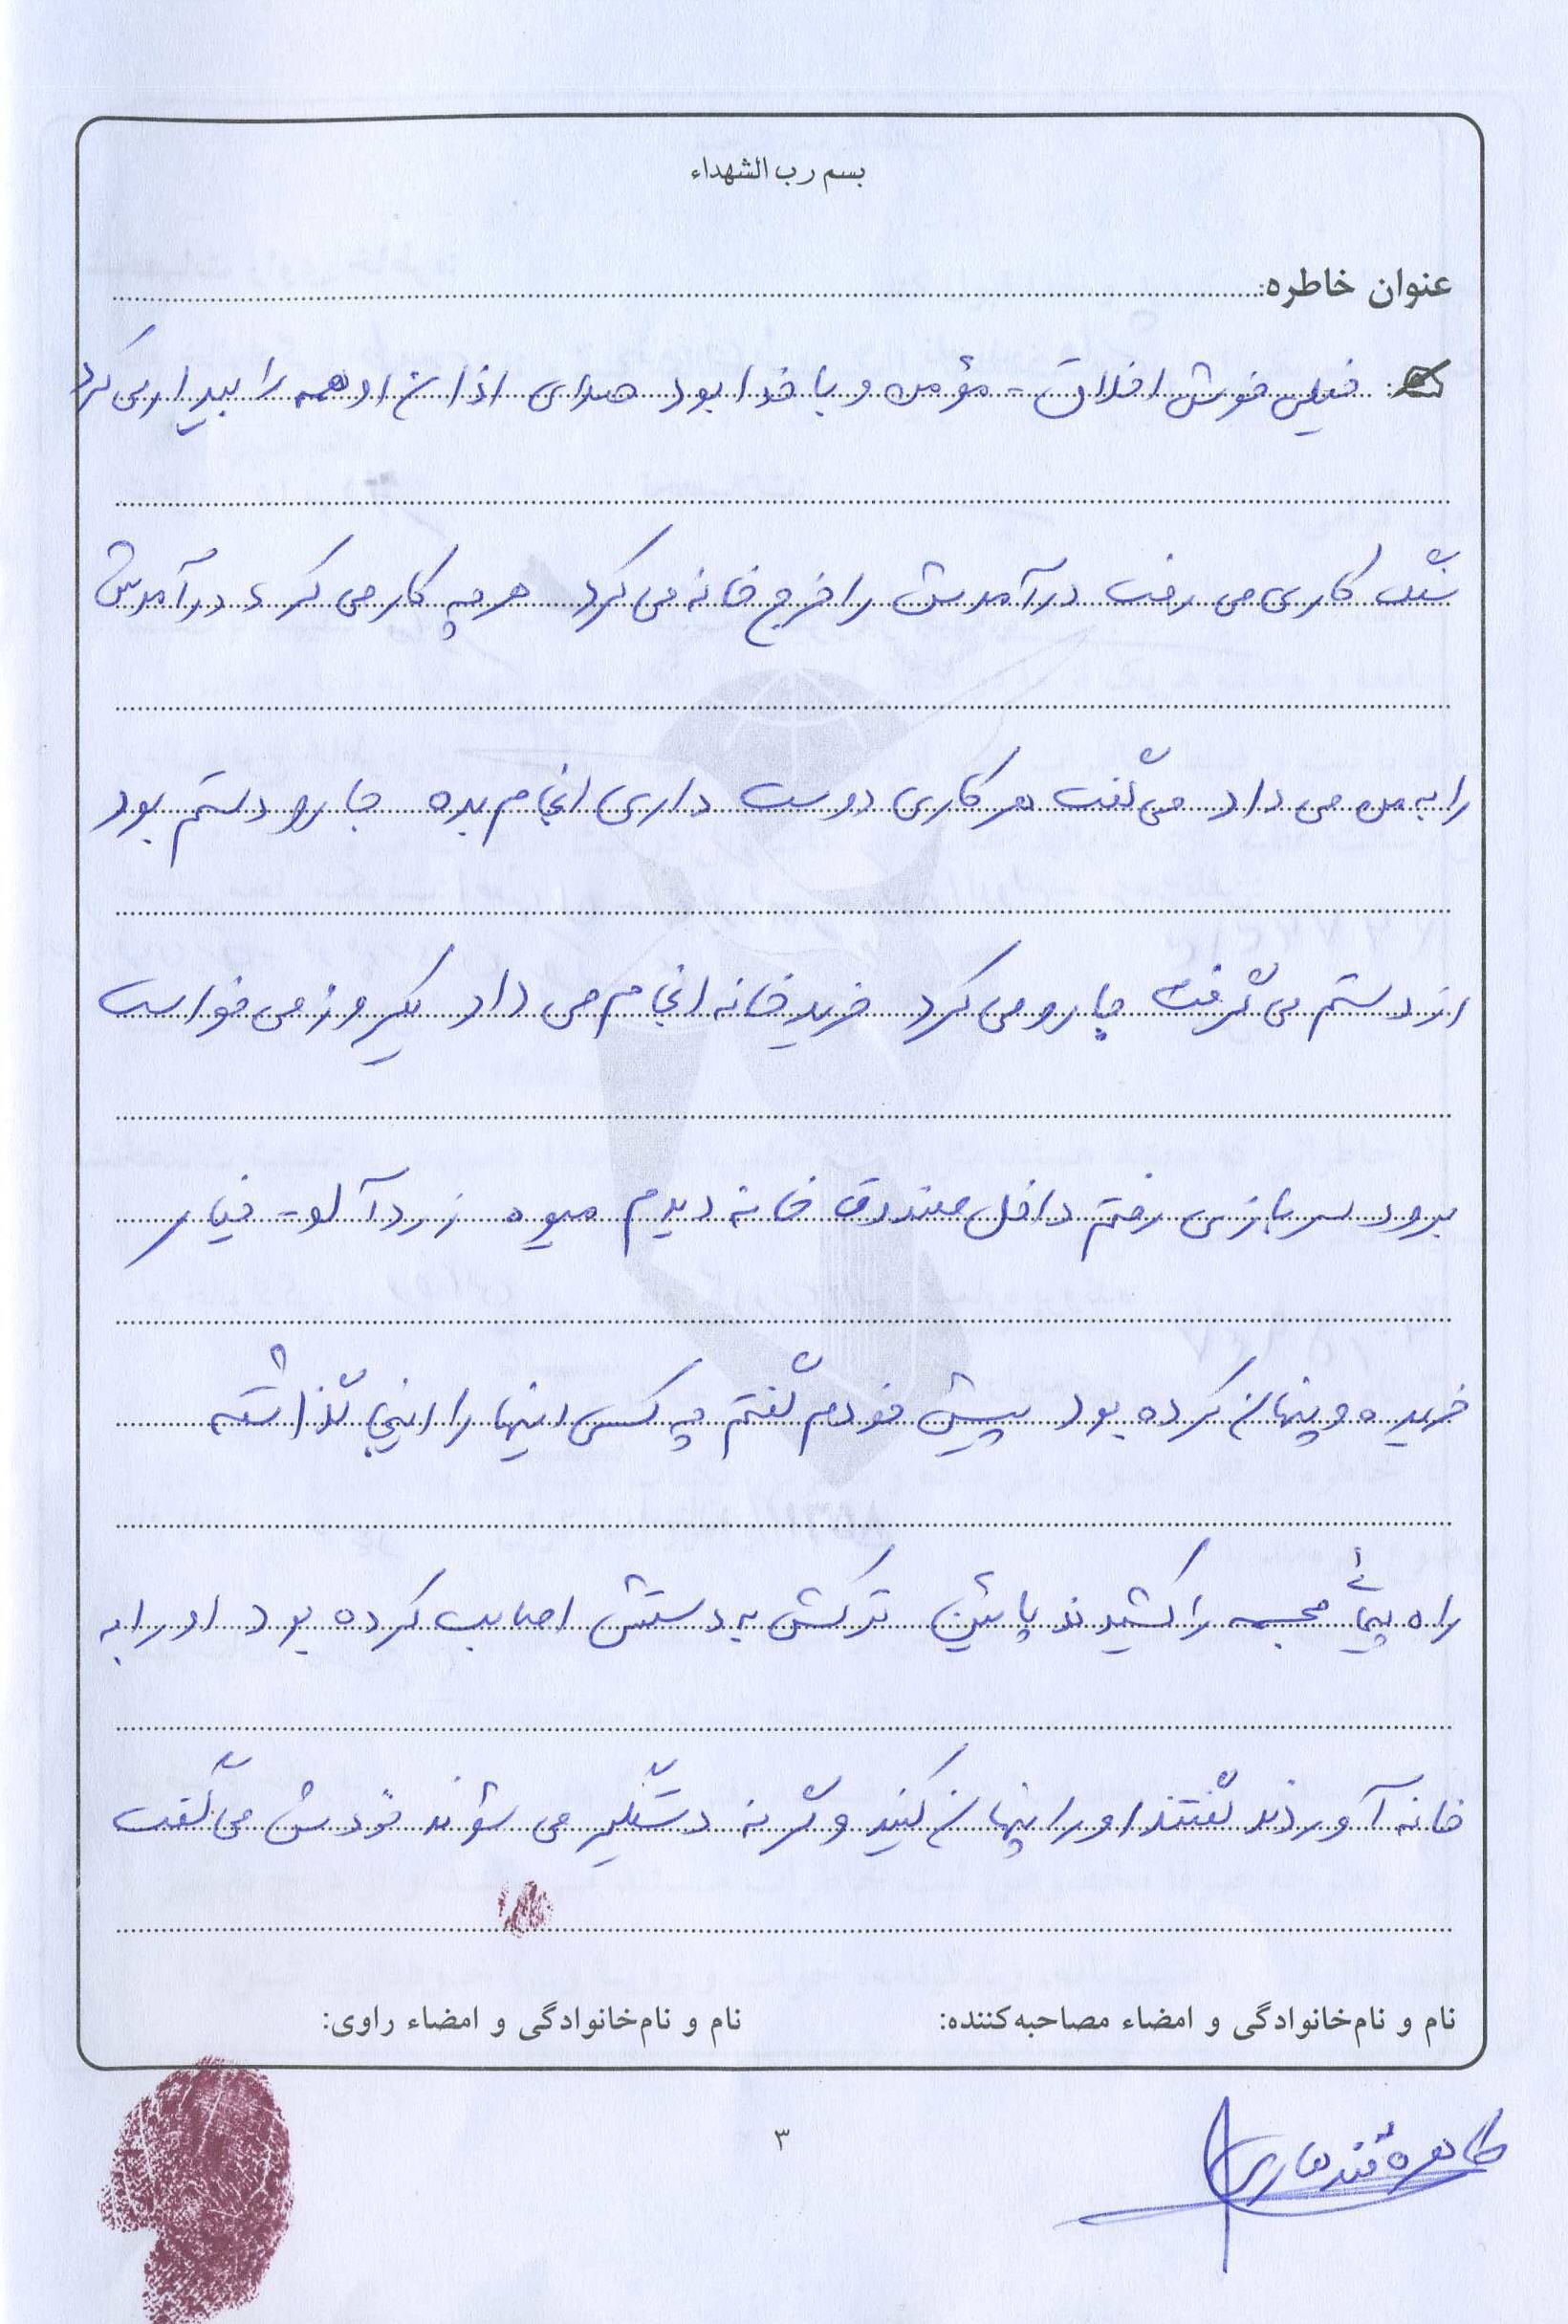 بسم رب الشهداء
عنوان خاطره:
خیلی خوش اخلاق - مؤمن و با خدا بود صدای اذان او همه را بیدار می کرد
سنگ کاری می رفت درآمدش را خرج خانه می کرد هر چه کار می کرد درآمدش
را به من می داد می گفت هر کاری دوست داری انجام بده جارو دستم بود
از دستم می گرفت جارو می کرد خرید خانه انجام می داد یکروز می خواست
برود سربازی رفتم داخل صندوق خانه دیدم میوه زردآلو - خیار
خریده و پنهان کرده بود پیش خودم گفتم چه کسی اینها را اینجا گذاشته
راه پیمائی مجسمه را کشیدند پائین ترکش به دستش اصابت کرده بود او را به
خانه آوردند گفتند او را پنهان کنید وگرنه دستگیر می شوند خودش می گفت
نام و نام‌خانوادگی و امضاء مصاحبه‌کننده:
نام و نام‌خانوادگی و امضاء راوی:
۳
طاهره قندهاری